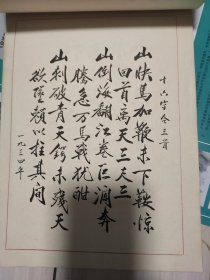 十六字令三首
山快马加鞭未下鞍惊
回首离天三尺三
山倒海翻江卷巨澜奔
腾急万马战犹酣
山刺破青天锷未残天
欲堕赖以拄其间
一九三四年